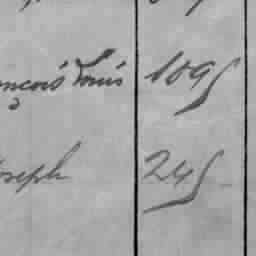 ançois Louis 1095
oseph 245